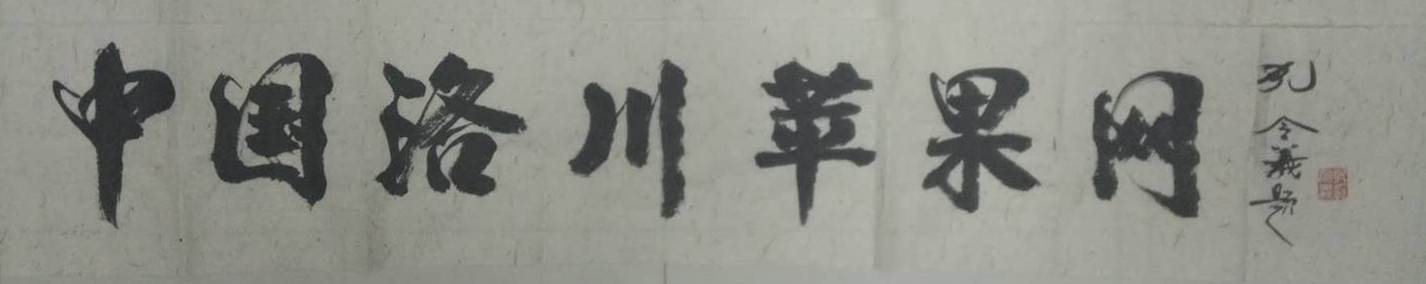 中国洛川苹果网
孔令義题